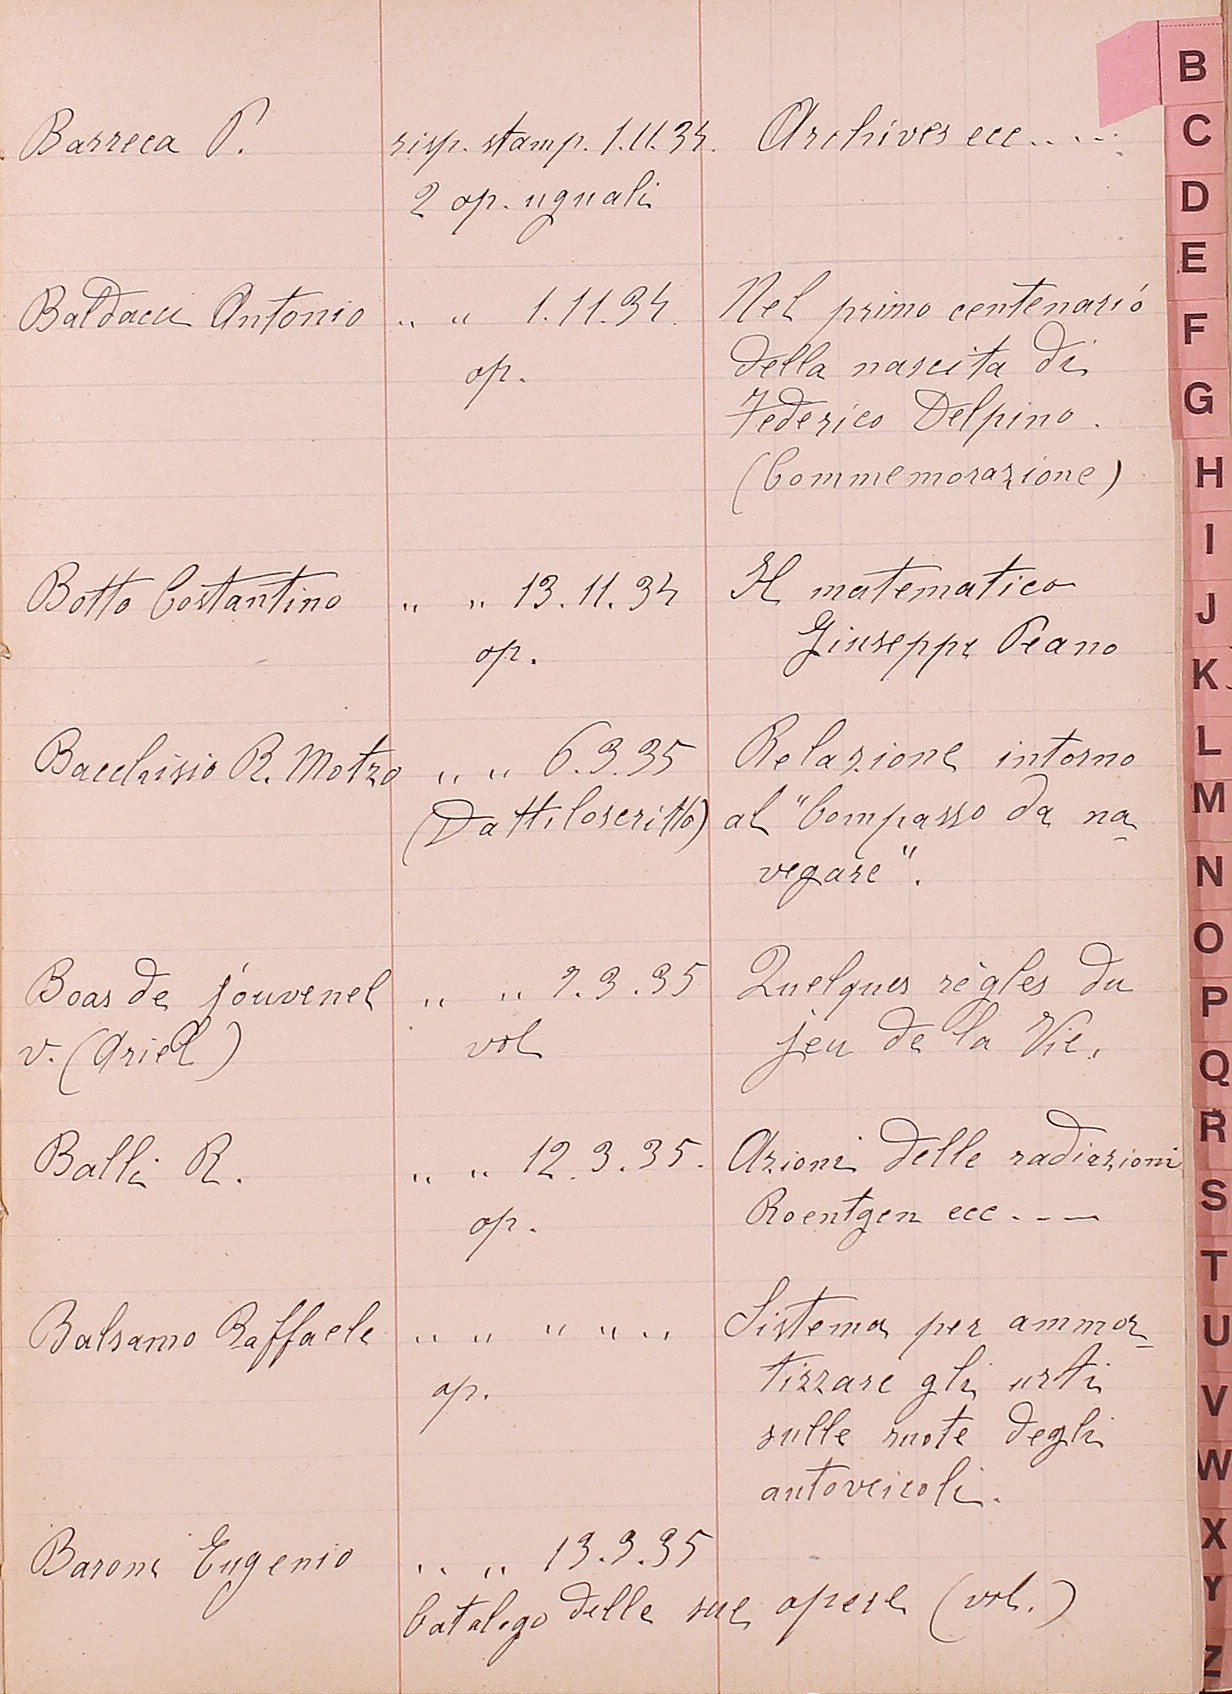 Barreca P. risp. stamp. 1.11.34. Archives ecc.....
2 op. uguali
Baldacci Antonio " " 1.11.34. Nel primo centenario
op. della nascita di
Federico Delpino.
(Commemorazione)
Botto Costantino " " 13.11.34 Il matematico
op. Giuseppe Peano
Bacchisio R. Motzo " " 6.3.35 Relazione intorno
(Dattiloscritto) al "Compasso da na-
vegare".
Boas de jouvenel " " 9.3.35 Quelques règles du
v. (Ariel) vol jeu de la Vie.
Balli R. " " 12.3.35. Azioni delle radiazioni
op. Roentgen ecc----
Balsamo Raffaele " " " " " Sistema per ammor-
op. tizzare gli urti
sulle ruote degli
autoveicoli.
Baroni Eugenio " " 13.3.35
Catalogo delle sue opere (vol.)
B
C
D
E
F
G
H
I
J
K
L
M
N
O
P
Q
R
S
T
U
V
W
X
Y
Z